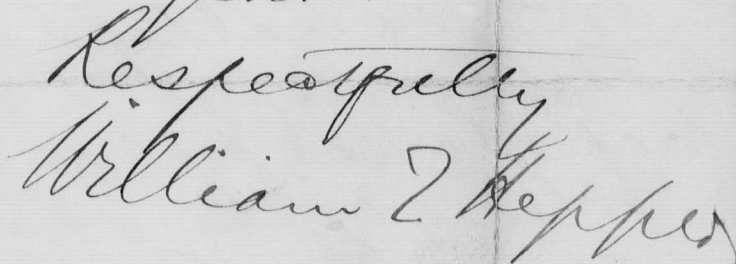 Respectfully
William T Hepper